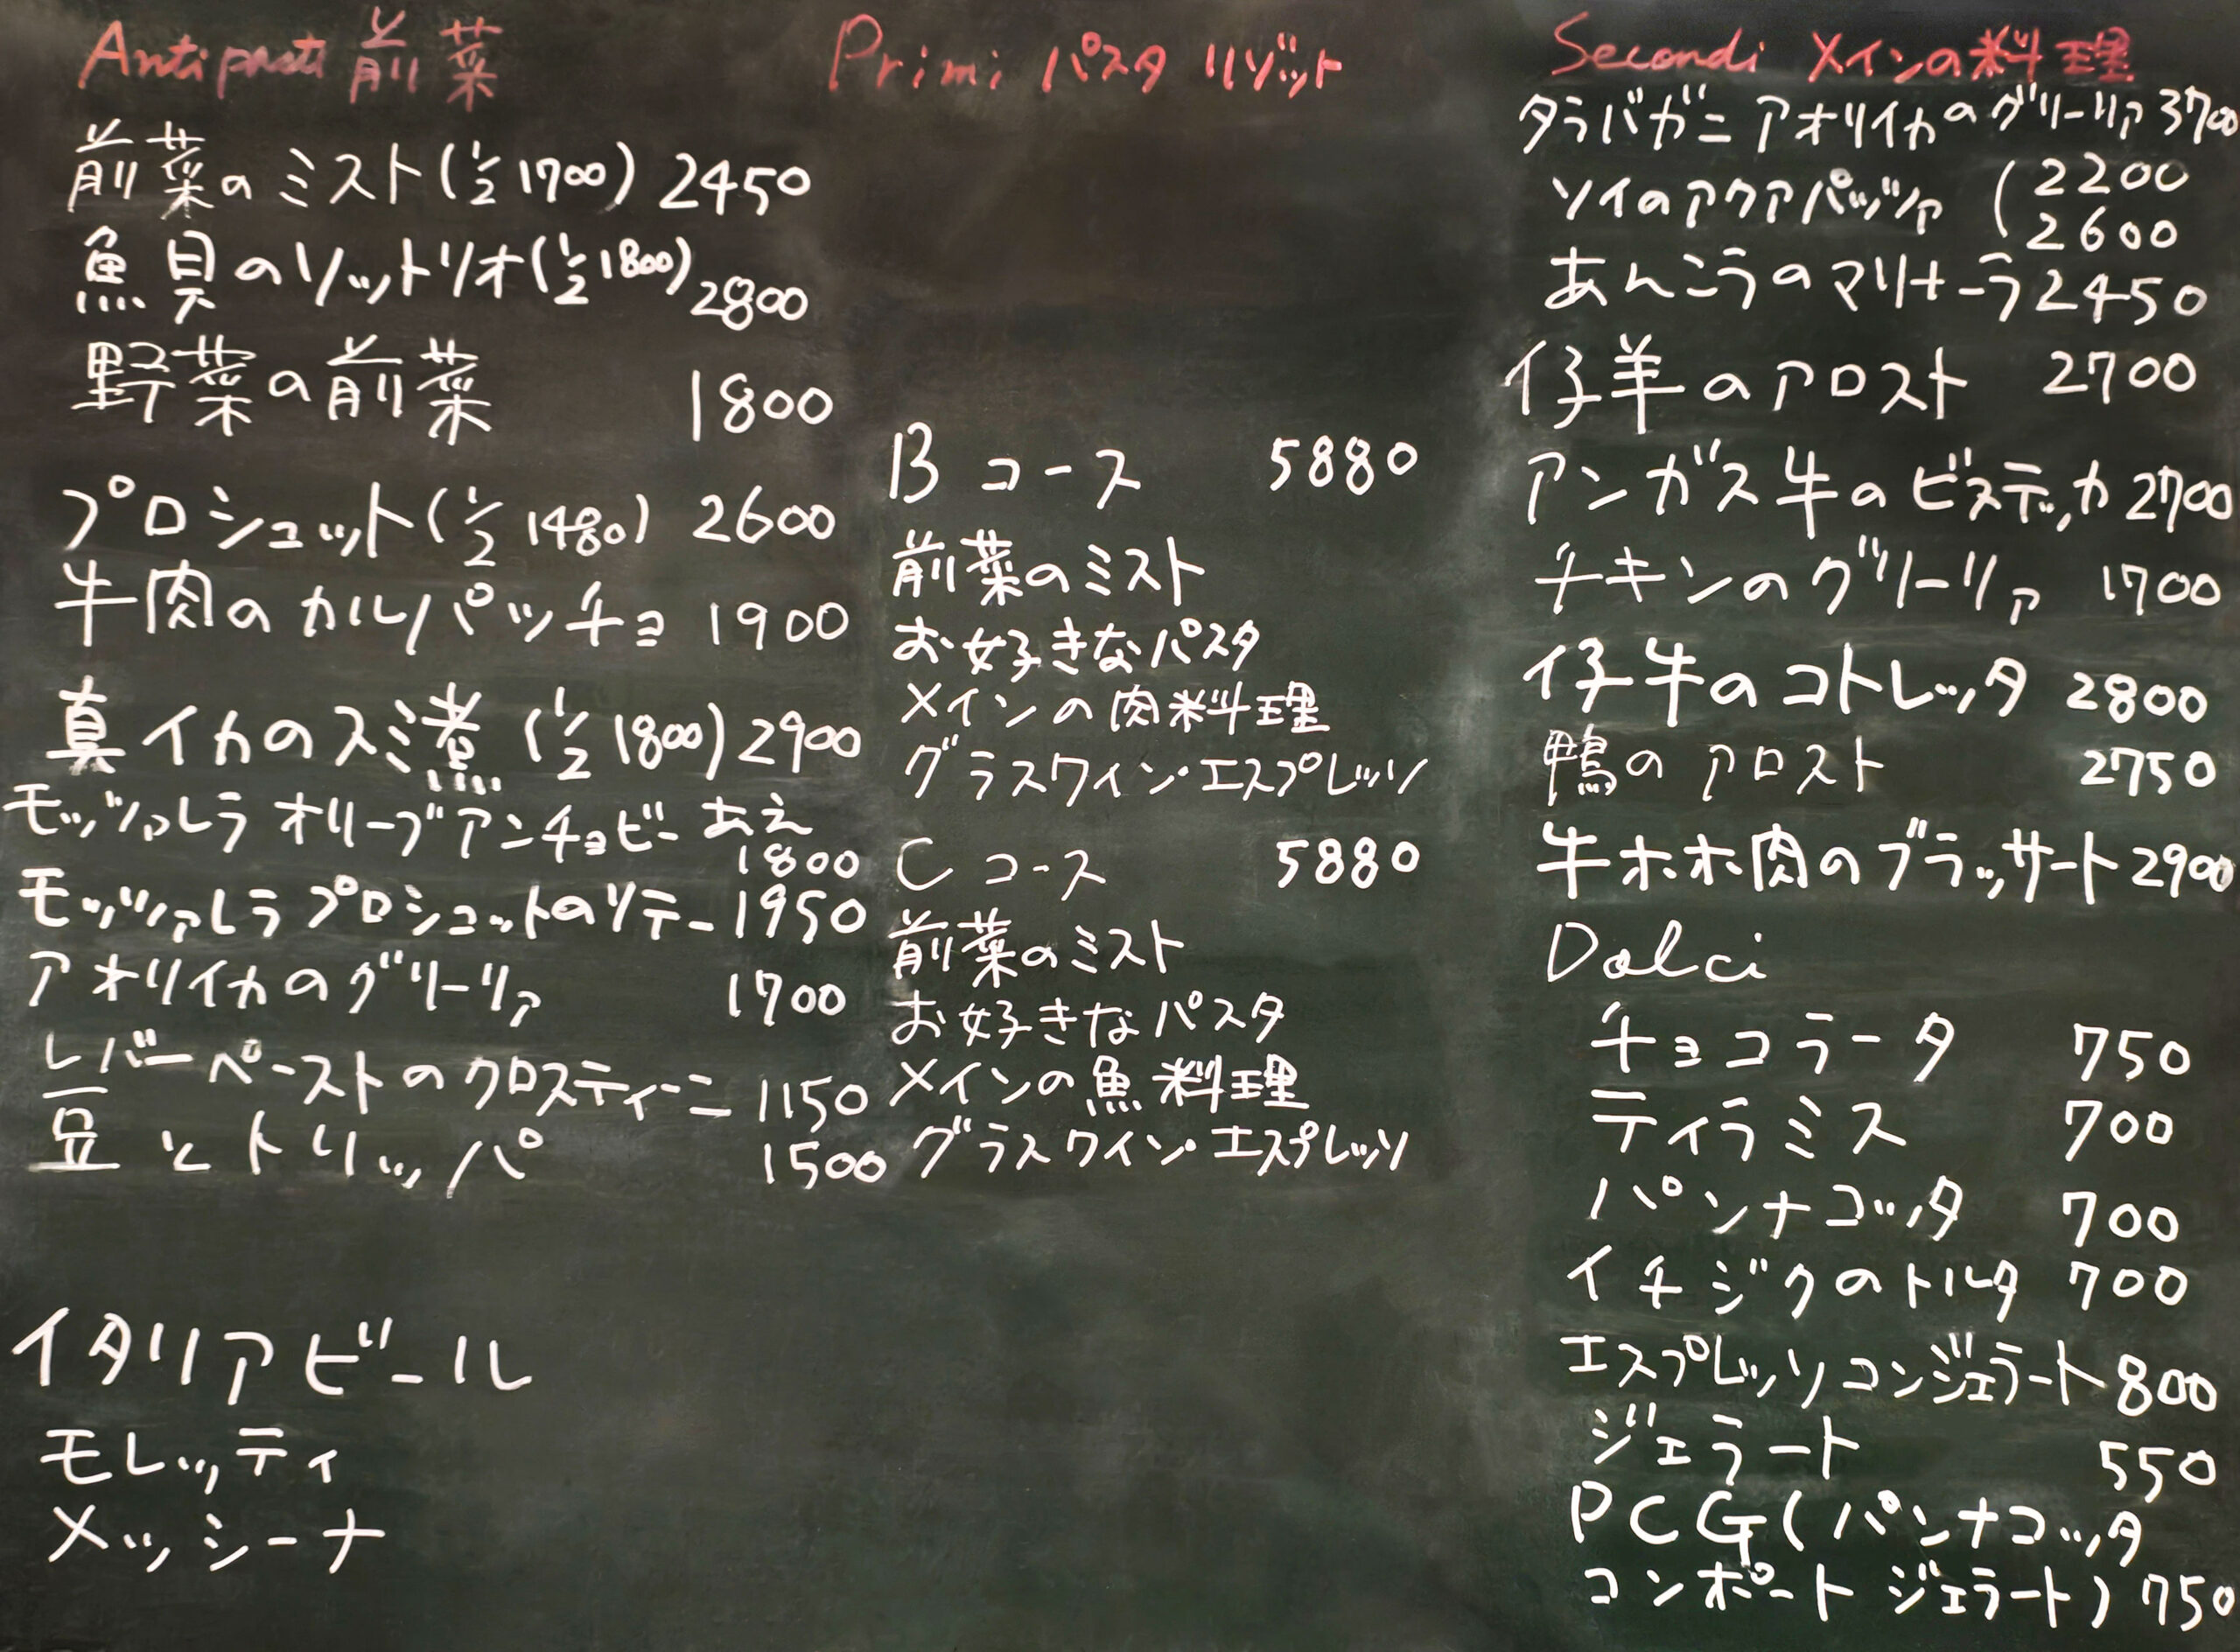 Antipasti 前菜
前菜のミスト(1/2 1700) 2450
魚貝のソットリオ(1/2 1800) 2800
野菜の前菜 1800
プロシュット(1/2 1480) 2600
牛肉のカルパッチョ 1900
真イカのスミ煮 (1/2 1800) 2900
モッツァレラ オリーブアンチョビーあえ
1800
モッツァレラプロシュットのソテー 1950
アオリイカのグリーリア 1700
レバーペーストのクロスティーニ 1150
豆とトリッパ 1500
イタリアビール
モレッティ
メッシーナ
Primi パスタ リゾット
B コース 5880
前菜のミスト
お好きなパスタ
メインの肉料理
グラスワイン・エスプレッソ
C コース 5880
前菜のミスト
お好きなパスタ
メインの魚料理
グラスワイン・エスプレッソ
Secondi メインの料理
タラバガニ アオリイカのグリーリア 3700
ソイのアクアパッツァ (2200
2600
あんこうのマリナーラ 2450
仔羊のアロスト 2700
アンガス牛のビステッカ 2700
チキンのグリーリア 1700
仔牛のコトレッタ 2800
鴨のアロスト 2750
牛ホホ肉のブラッサート 2900
Dolci
チョコラータ 750
ティラミス 700
パンナコッタ 700
イチジクのトルタ 700
エスプレッソコンジェラート 800
ジェラート 550
PCG(パンナコッタ
コンポート ジェラート) 750